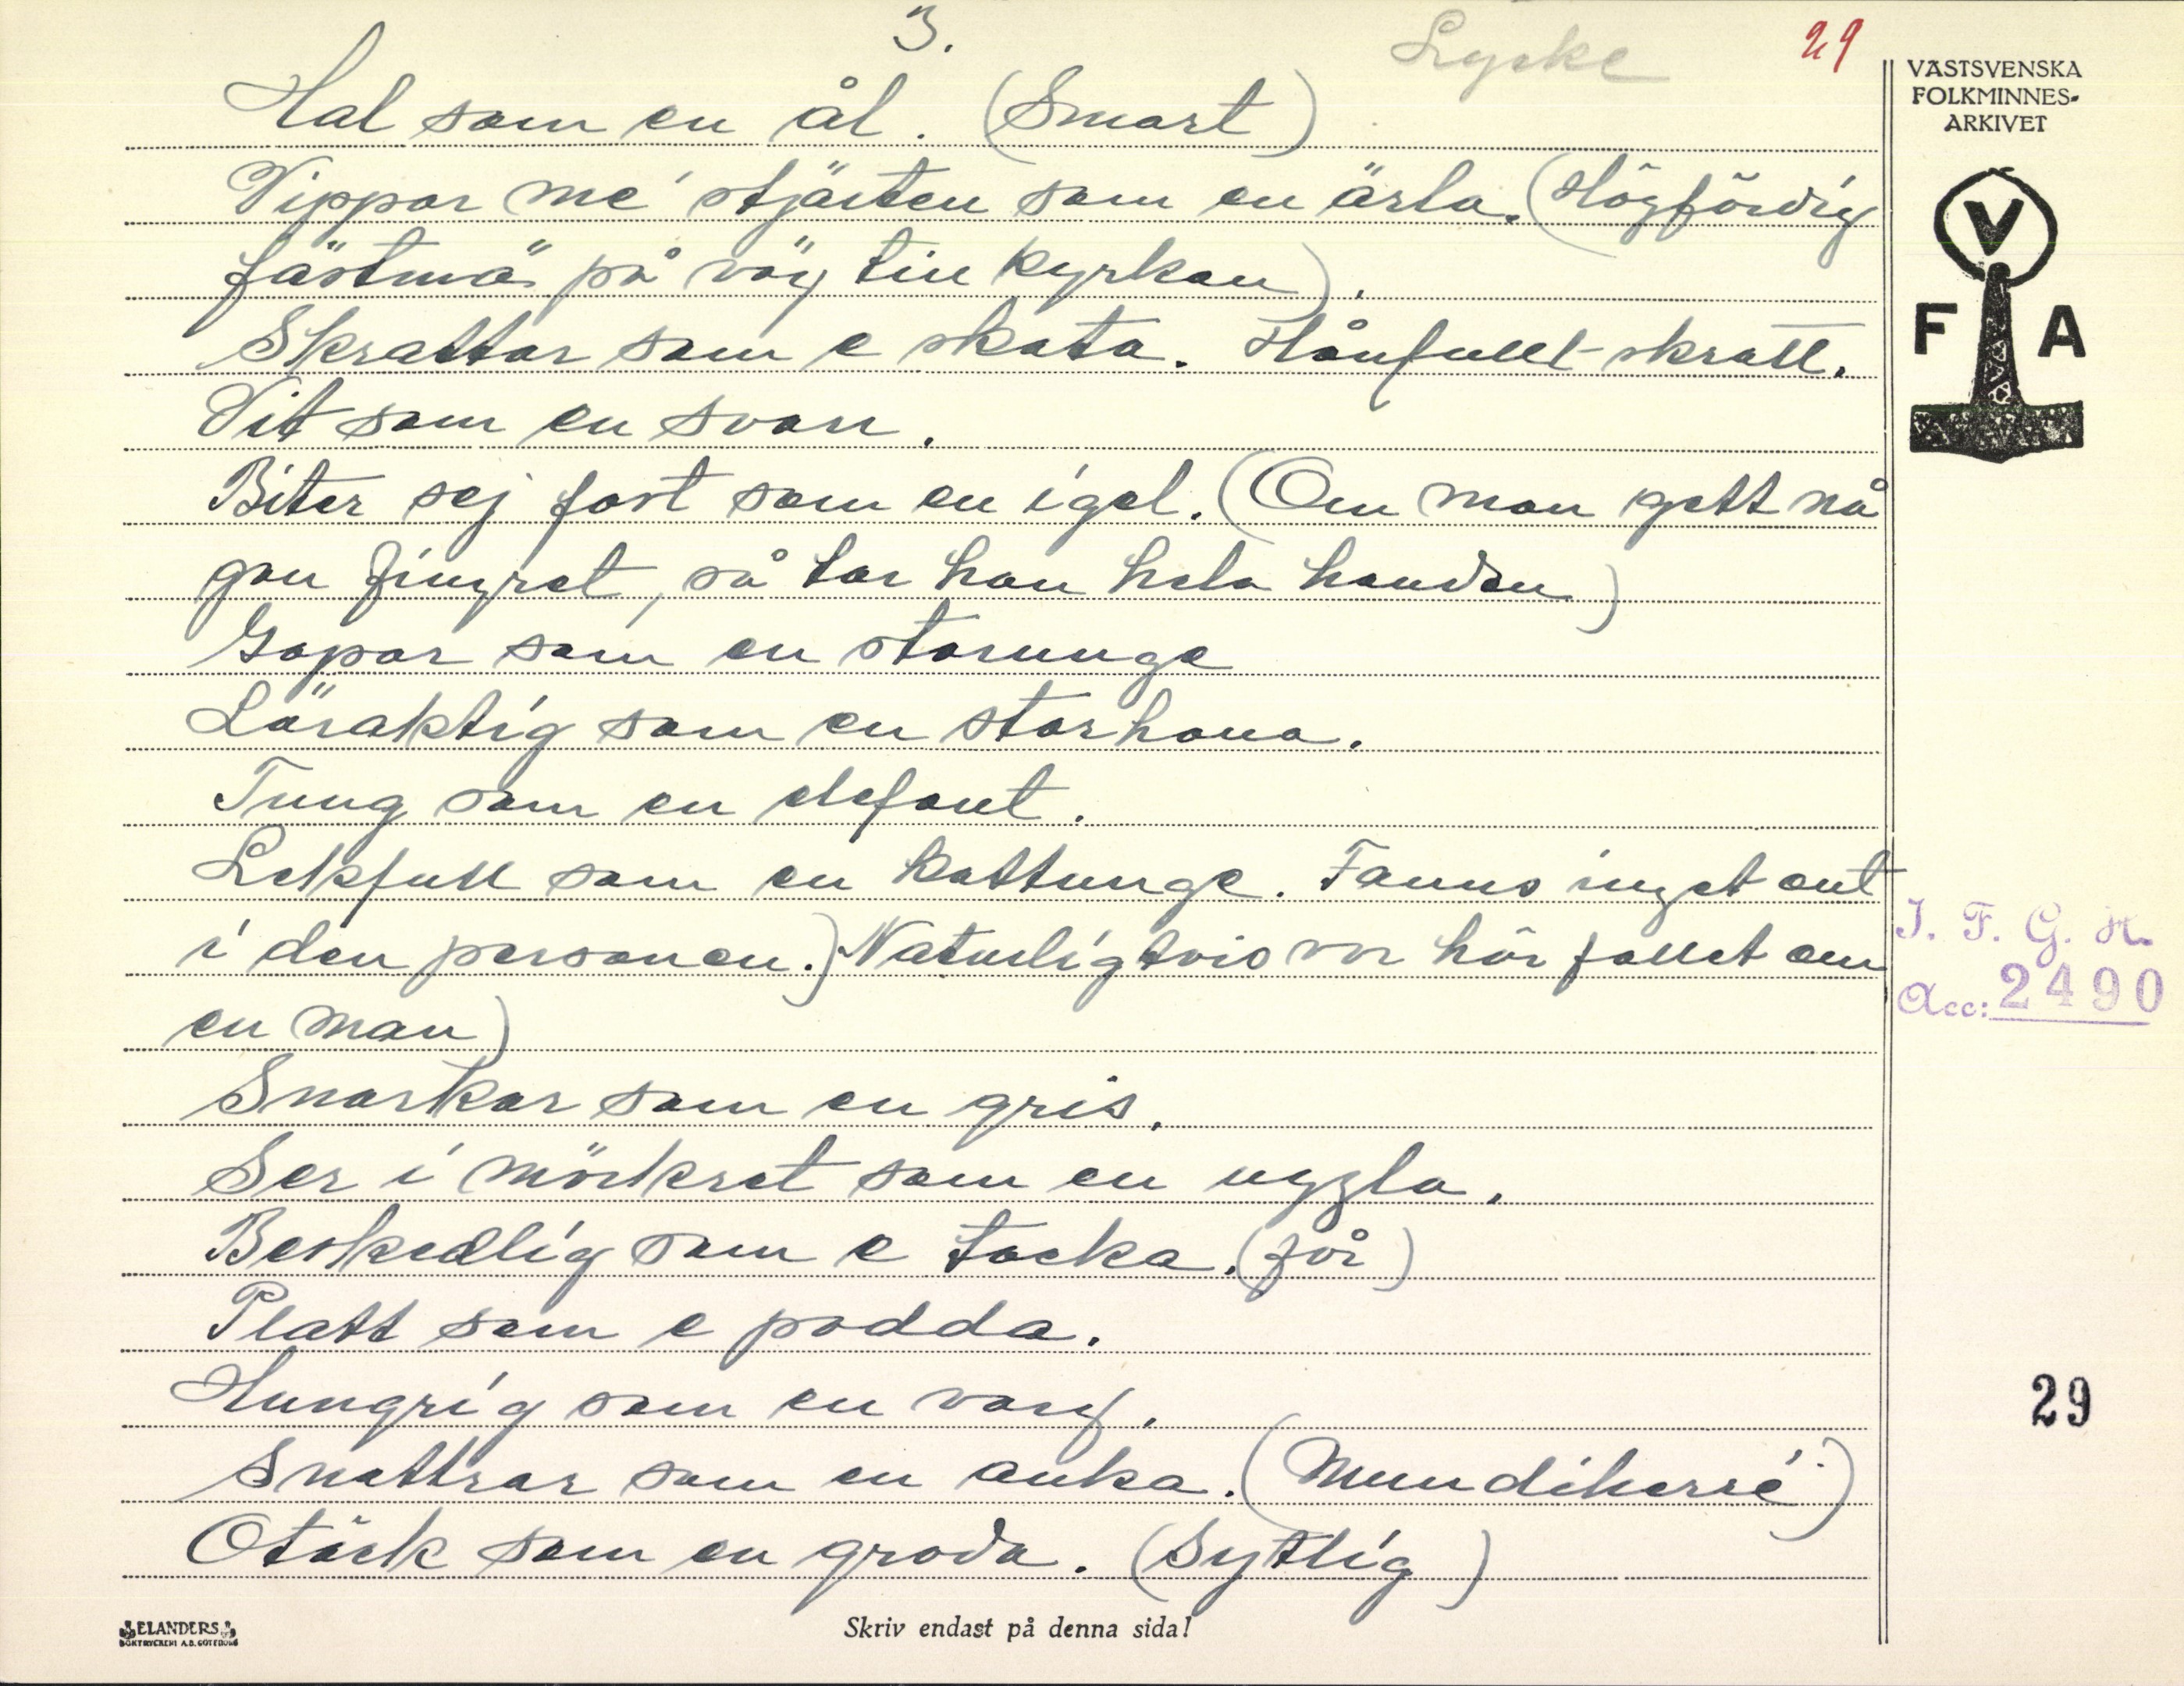 3.
Lycke
29
VÄSTSVENSKA
FOLKMINNES-
ARKIVET
V
F A
Hal som en ål. (Smart)
Vippar me' stjärten som en ärla. (Högfärdig
fästmö på väg till kyrkan).
Skrattar som e skata. Hånfullt skratt.
Vit som en svan.
Biter sej fast som en igel. (Om man gett nå
gon fingret, så tar han hela handen)
Gapar som en starunge
Läraktig som en starhona.
Tung som en elefant.
Lekfull som en kattunge. Fanns inget ont
i den personen.) Naturligtvis var här fallet om
en man)
Snarkar som en gris.
Ser i mörkret som en uggla.
Beskedlig som e tacka. (får)
Platt som e padda.
Hungrig som en varg.
Snattrar som en anka. (Mundiherré)
Otäck som en groda. (Sytlig)
I. F. G. H.
Acc: 2490
29
ELANDERS
BOKTRYCKERI A.B. GÖTEBORG
Skriv endast på denna sida!